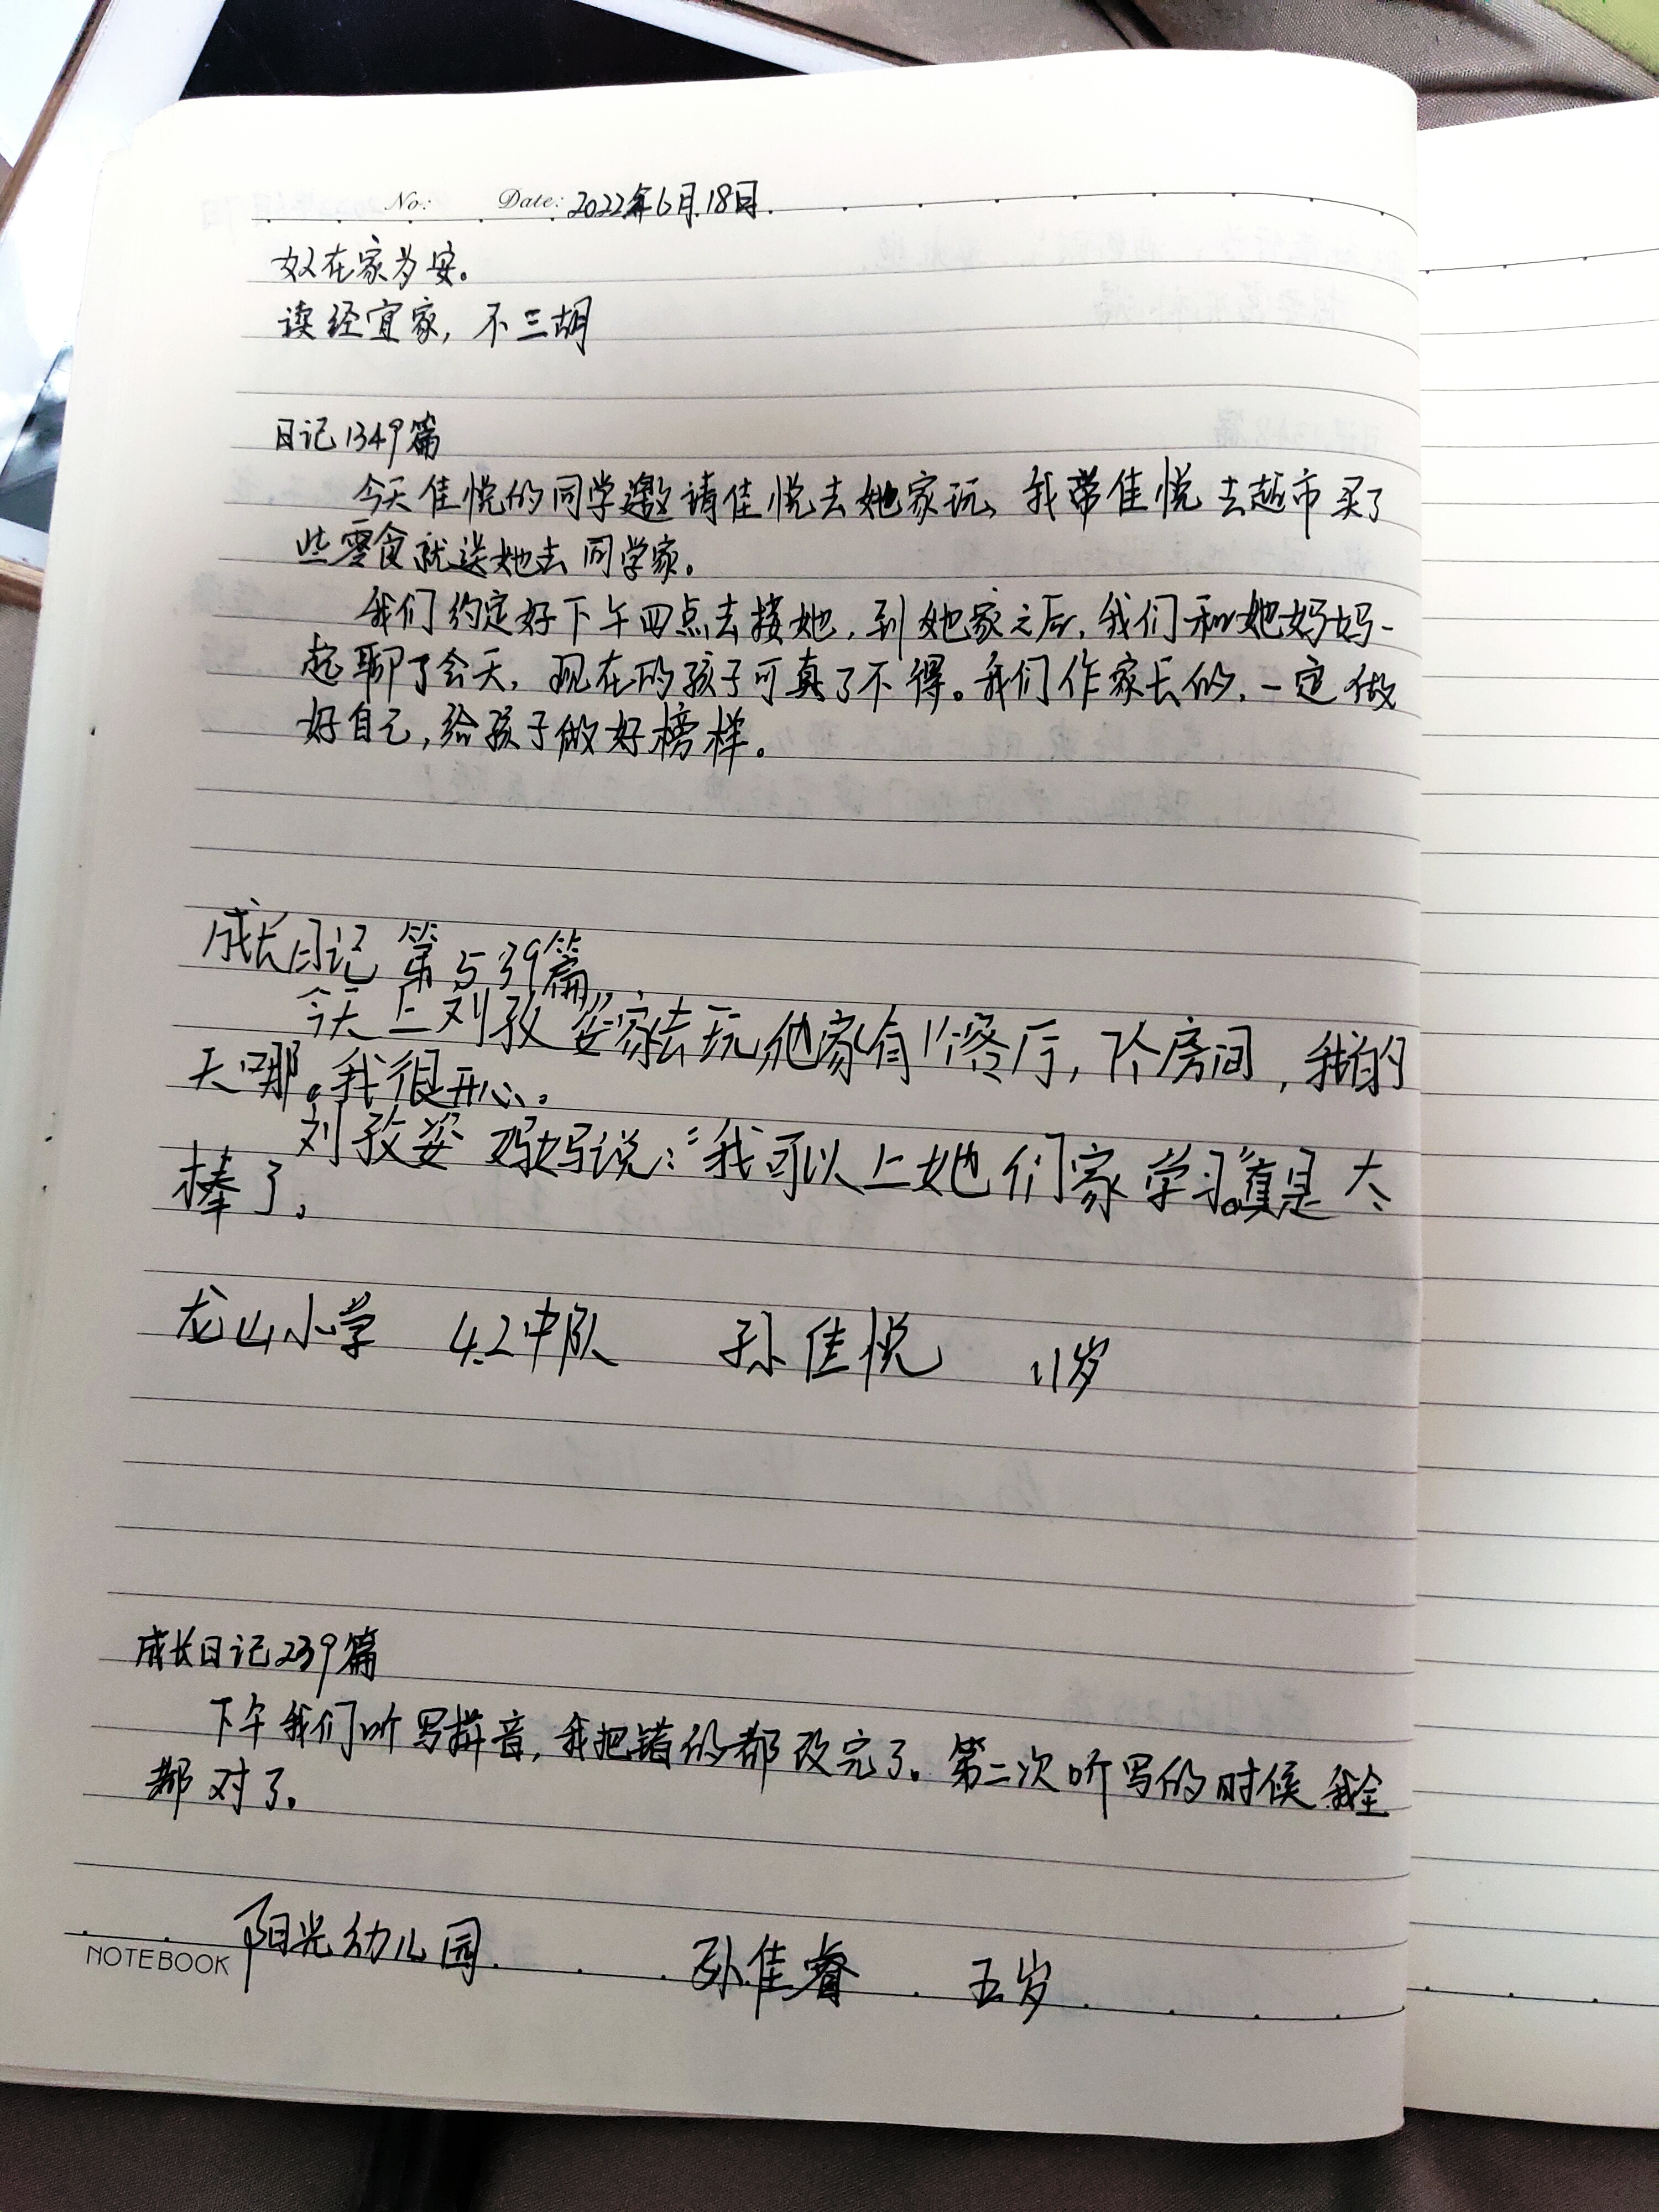 No: Date: 2022年6月18日
女又在家为安。
读经宜家,不三胡
日记1349篇
今天佳悦的同学邀请佳悦去她家玩,我带佳悦去超市买了
些零食就送她去同学家。
我们约定好下午四点去接她,到她家之后,我们和她妈妈一
起聊了会天,现在的孩子可真了不得。我们作家长的,一定做
好自己,给孩子做好榜样。
成长日记第539篇
今天上刘孜姿家去玩,他家有1个客厅,个房间,我的
天哪。我很开心。
刘孜姿妈妈说:“我可以上她们家学习。”真是太
棒了。
龙山小学 4.2中队 孙佳悦 11岁
成长日记239篇
下午我们听写拼音,我把错的都改完了。第二次听写的时候我全
都对了。
阳光幼儿园 孙佳睿 五岁
NOTEBOOK